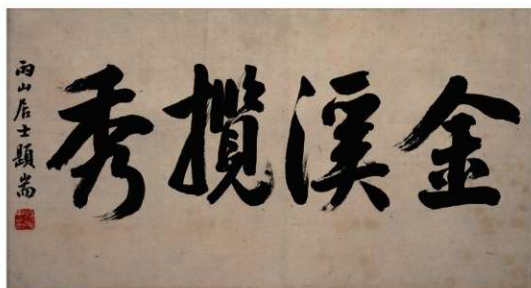 金溪攬秀
雨山居士顯耑